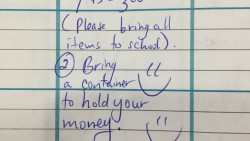 (Please bring all
items to school).
② Bring
a container
to hold your
money.